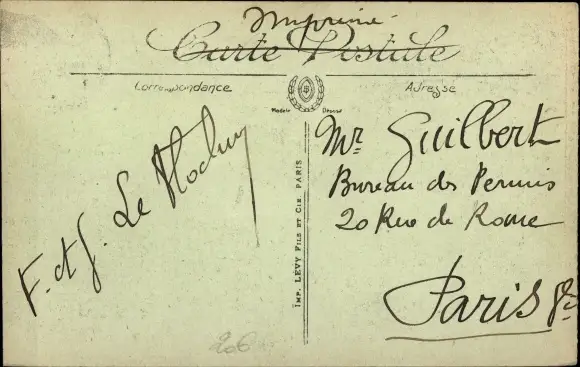 Imprimé
Carte Postale
Correspondance
Adresse
Modèle Déposé
F. et J. Le
Mr. Guilbert
Bureau des Permis
20 Rue de Rome
Paris 8e
IMP. LÉVY FILS ET CIE PARIS
206